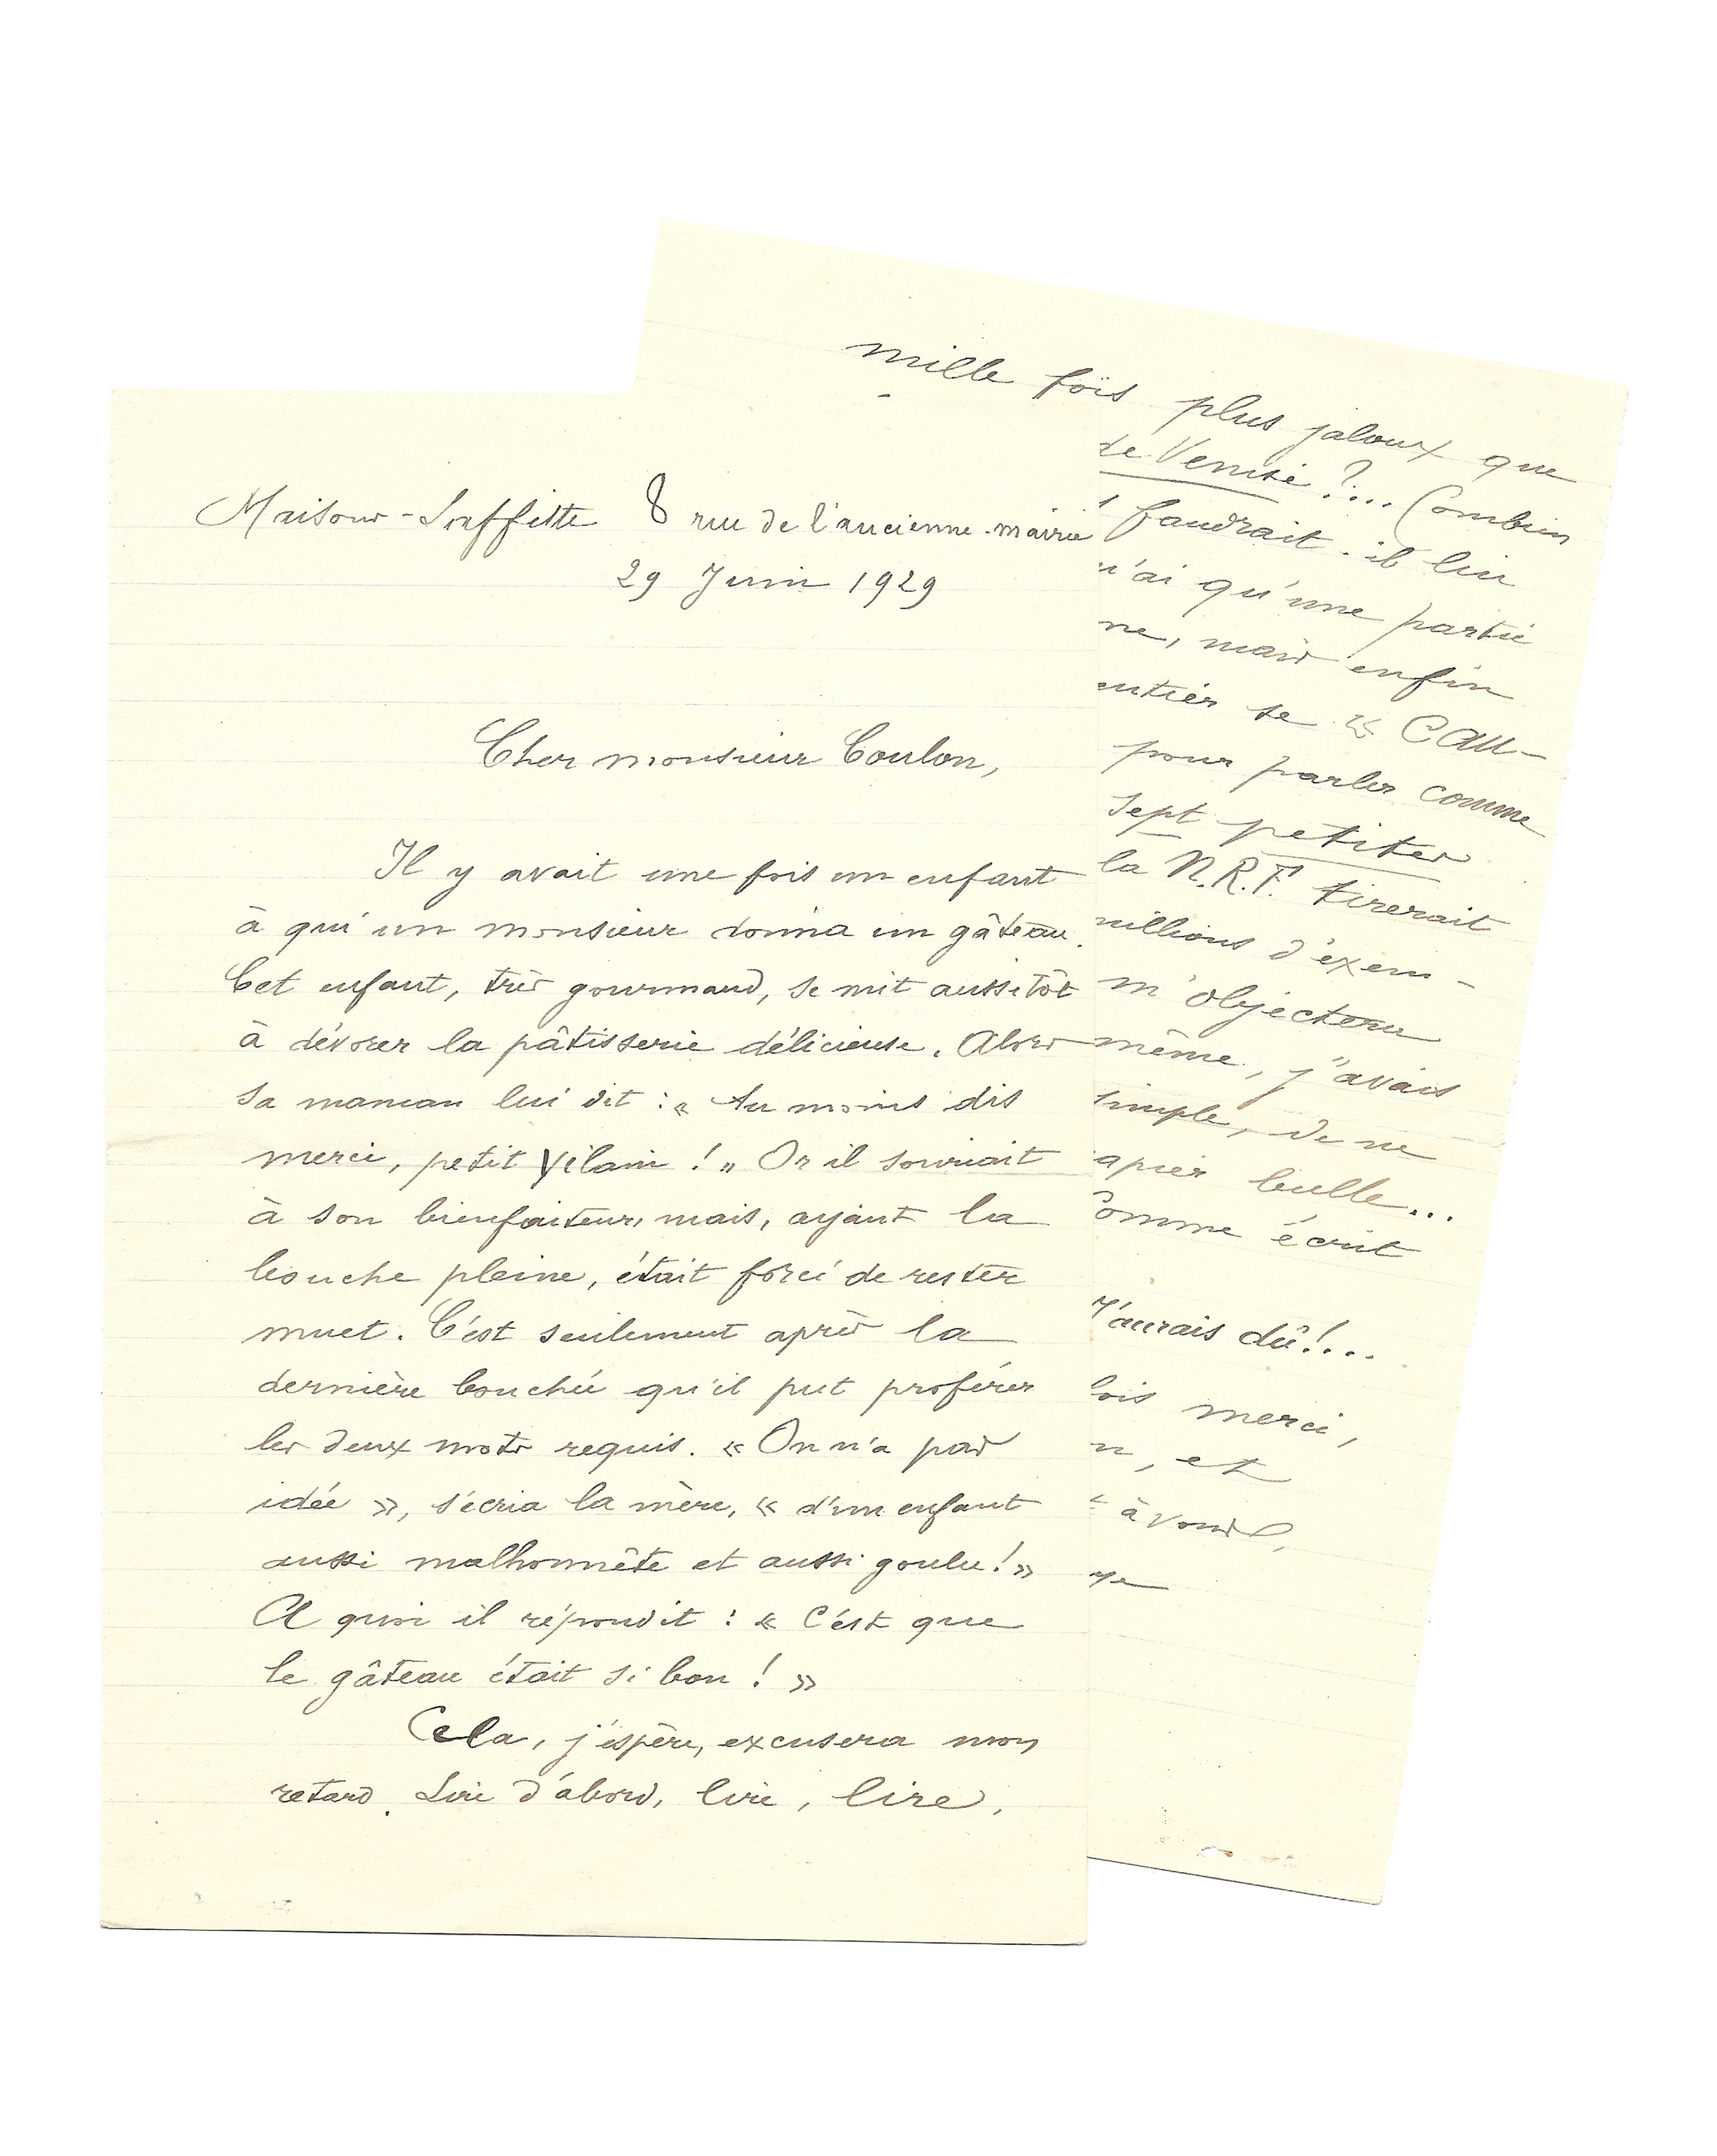 Maisons-Laffitte 8 rue de l'ancienne-mairie
29 Juin 1929
Cher monsieur Coulon,
Il y avait une fois un enfant
à qui un monsieur donna un gâteau.
Cet enfant, très gourmand, se mit aussitôt
à dévorer la pâtisserie délicieuse. Alors
sa maman lui dit : « Au moins dis
merci, petit vilain ! » Or il souriait
à son bienfaiteur, mais, ayant la
bouche pleine, était forcé de rester
muet. C'est seulement après la
dernière bouchée qu'il put proférer
les deux mots requis. « On n'a pas
idée », s'écria la mère, « d'un enfant
aussi malhonnête et aussi goulu ! »
A quoi il répondit : « C'est que
le gâteau était si bon ! »
Cela, j'espère, excusera mon
retard. Lire d'abord, lire, lire,
mille fois plus jaloux que
de Venise ?... Combien
faudrait-il lire
n'ai qu'une partie
ne, mais enfin
entier se « CAU-
pour parler comme
sept petites
la N.R.F. tirerait
millions d'exem-
m'objectera
même, j'avais
simple, de ne
apier bulle...
comme écrit
J'aurais dû !...
fois merci,
n, et
à vous,